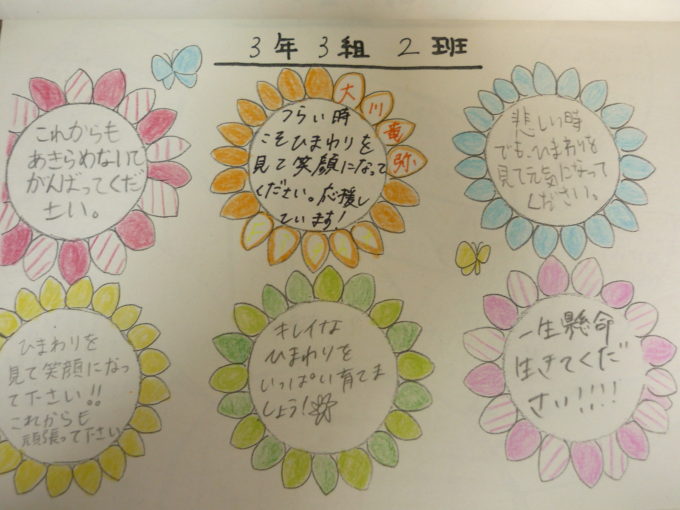 3年3組 2班
これからも
あきらめないで
がんばってくだ
さい。
つらい時
こそひまわりを
見て笑顔になって
ください。応援し
ています!
大川竜弥
悲しい時
でも、ひまわりを
見て元気になって
ください。
ひまわりを
見て笑顔になっ
て下さい!!
これからも
頑張って下さい
キレイな
ひまわりを
いっぱい育てま
しょう!
一生懸命
生きてくだ
さい!!!!